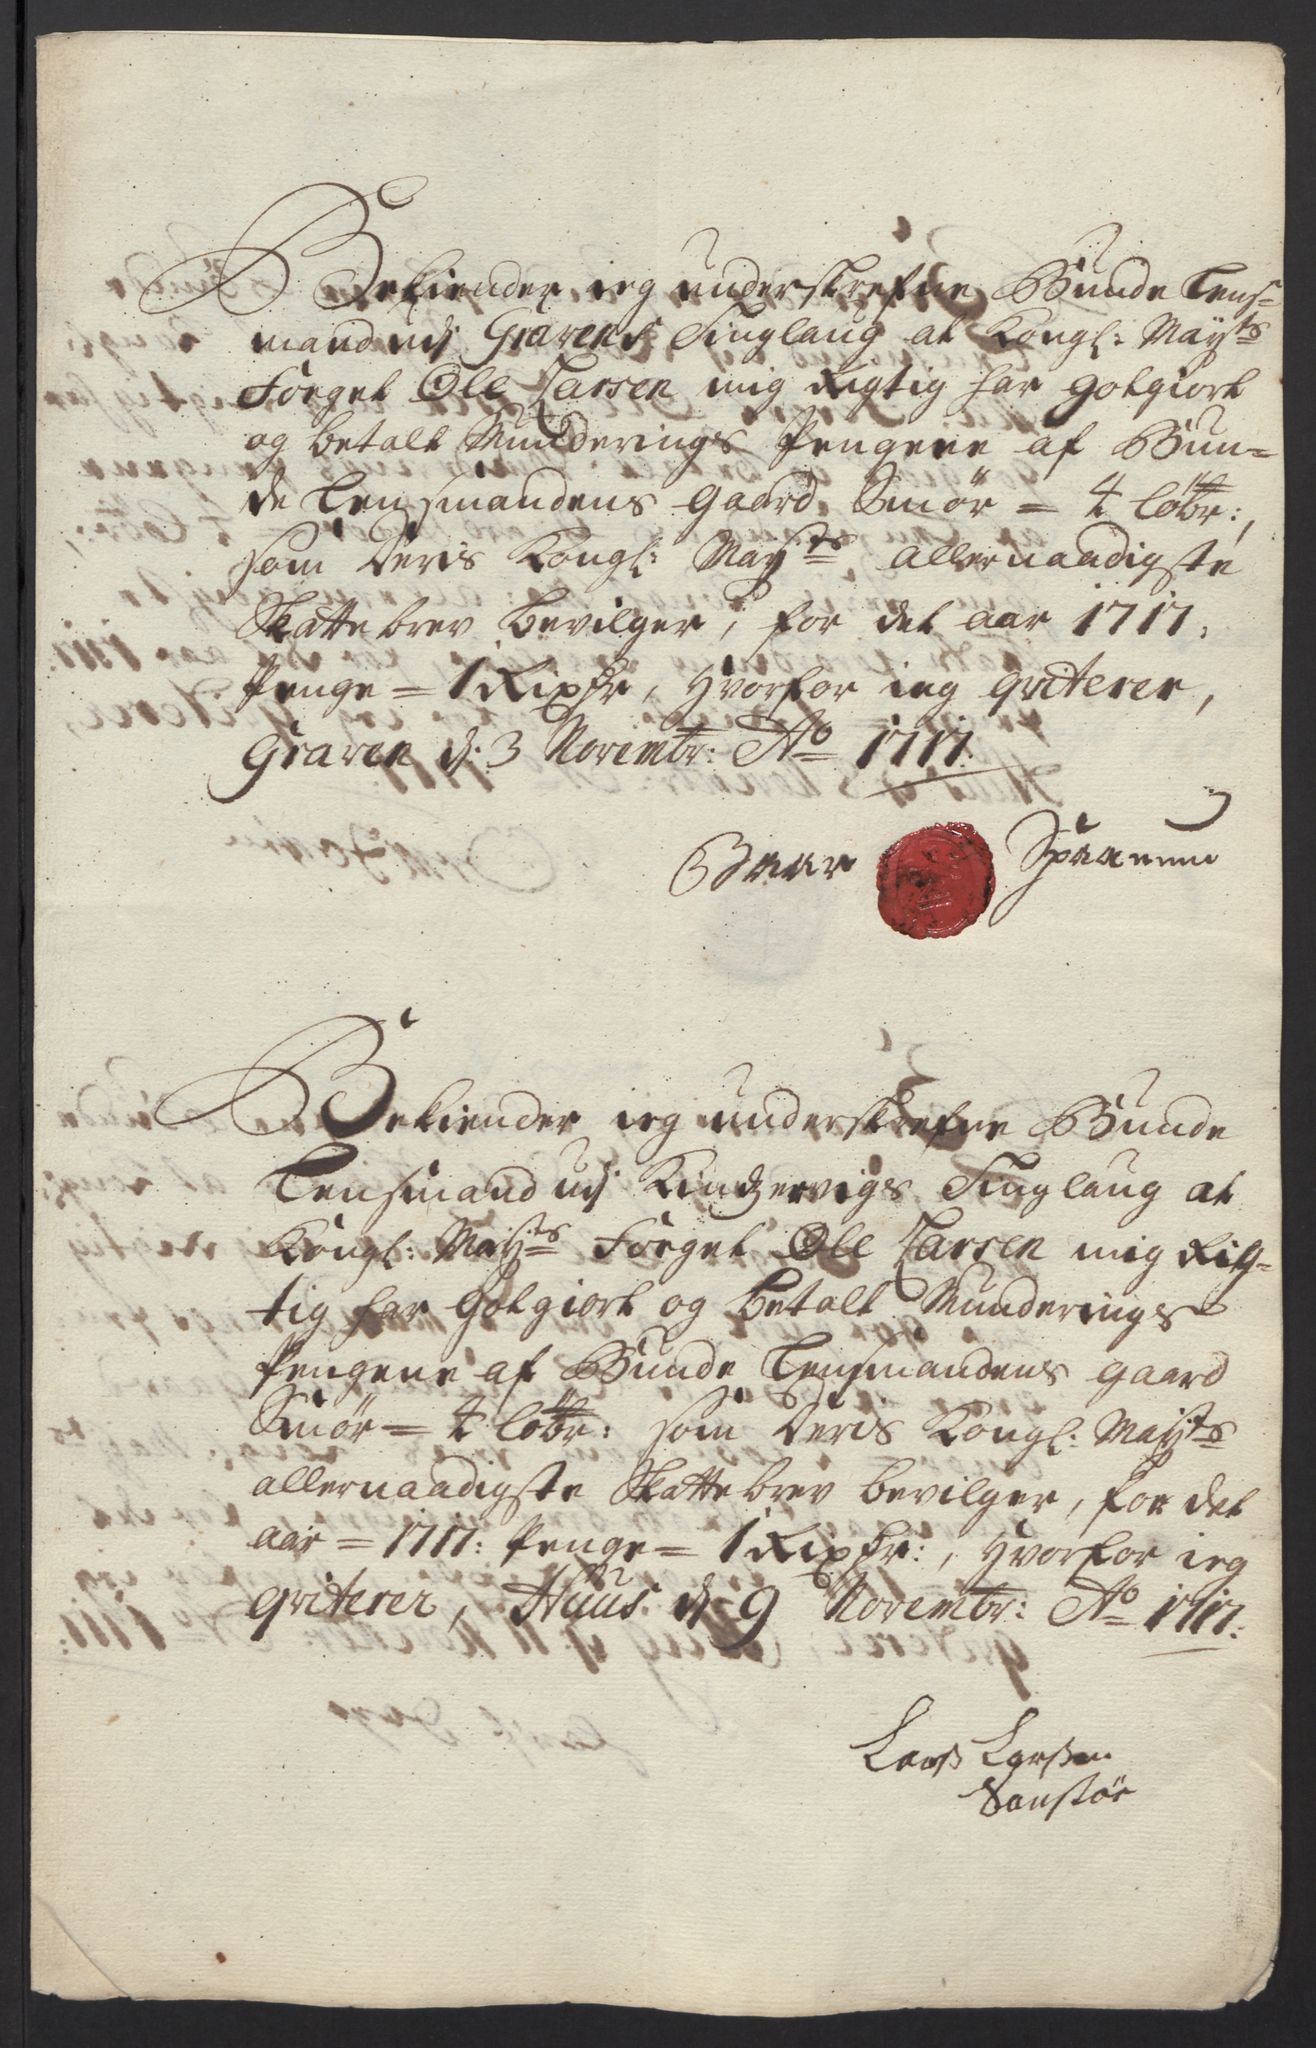 Bekiender ieg underskrefne Bunde Lens=
mand udj Gravens Tinglaug at Kongl: Mayts
Foeget Ole Larsen mig Rigtig har gotgiort
og betalt Munderings Pengene af Bun=
de Lensmandens gaard Smør = 4 løbr:,
som Deris Kongl: Mayts allernaadigste
Skattebrev bevilger, for det aar 1717,
Penge = 1 Rixdlr, hvorfor ieg qviterer,
Graven d: 3 Novembr: Ao 1717.
Bekiender ieg underskrefne Bunde
Lensmand udj Kindzervigs Tinglaug at
Kongl: Mayts Foeget Ole Larsen mig Rig=
tig har Gotgiort og betalt Munderings
Pengene af Bunde Lensmandens gaard
Smør = 4 løbr: som Deris Kongl: Mayts
allernaadigste Skattebrev bevilger, for det
aar = 1717: Penge = 1 Rixdlr:, hvorfor ieg
qviterer, Huus d 9 Novembr: Ao 1717:
Lars Larsen